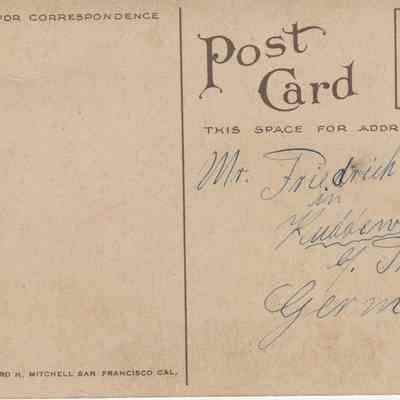 FOR CORRESPONDENCE
Post
Card
THIS SPACE FOR ADDR
Mr. Friedrich
in
Germ
RD H. MITCHELL SAN FRANCISCO CAL.